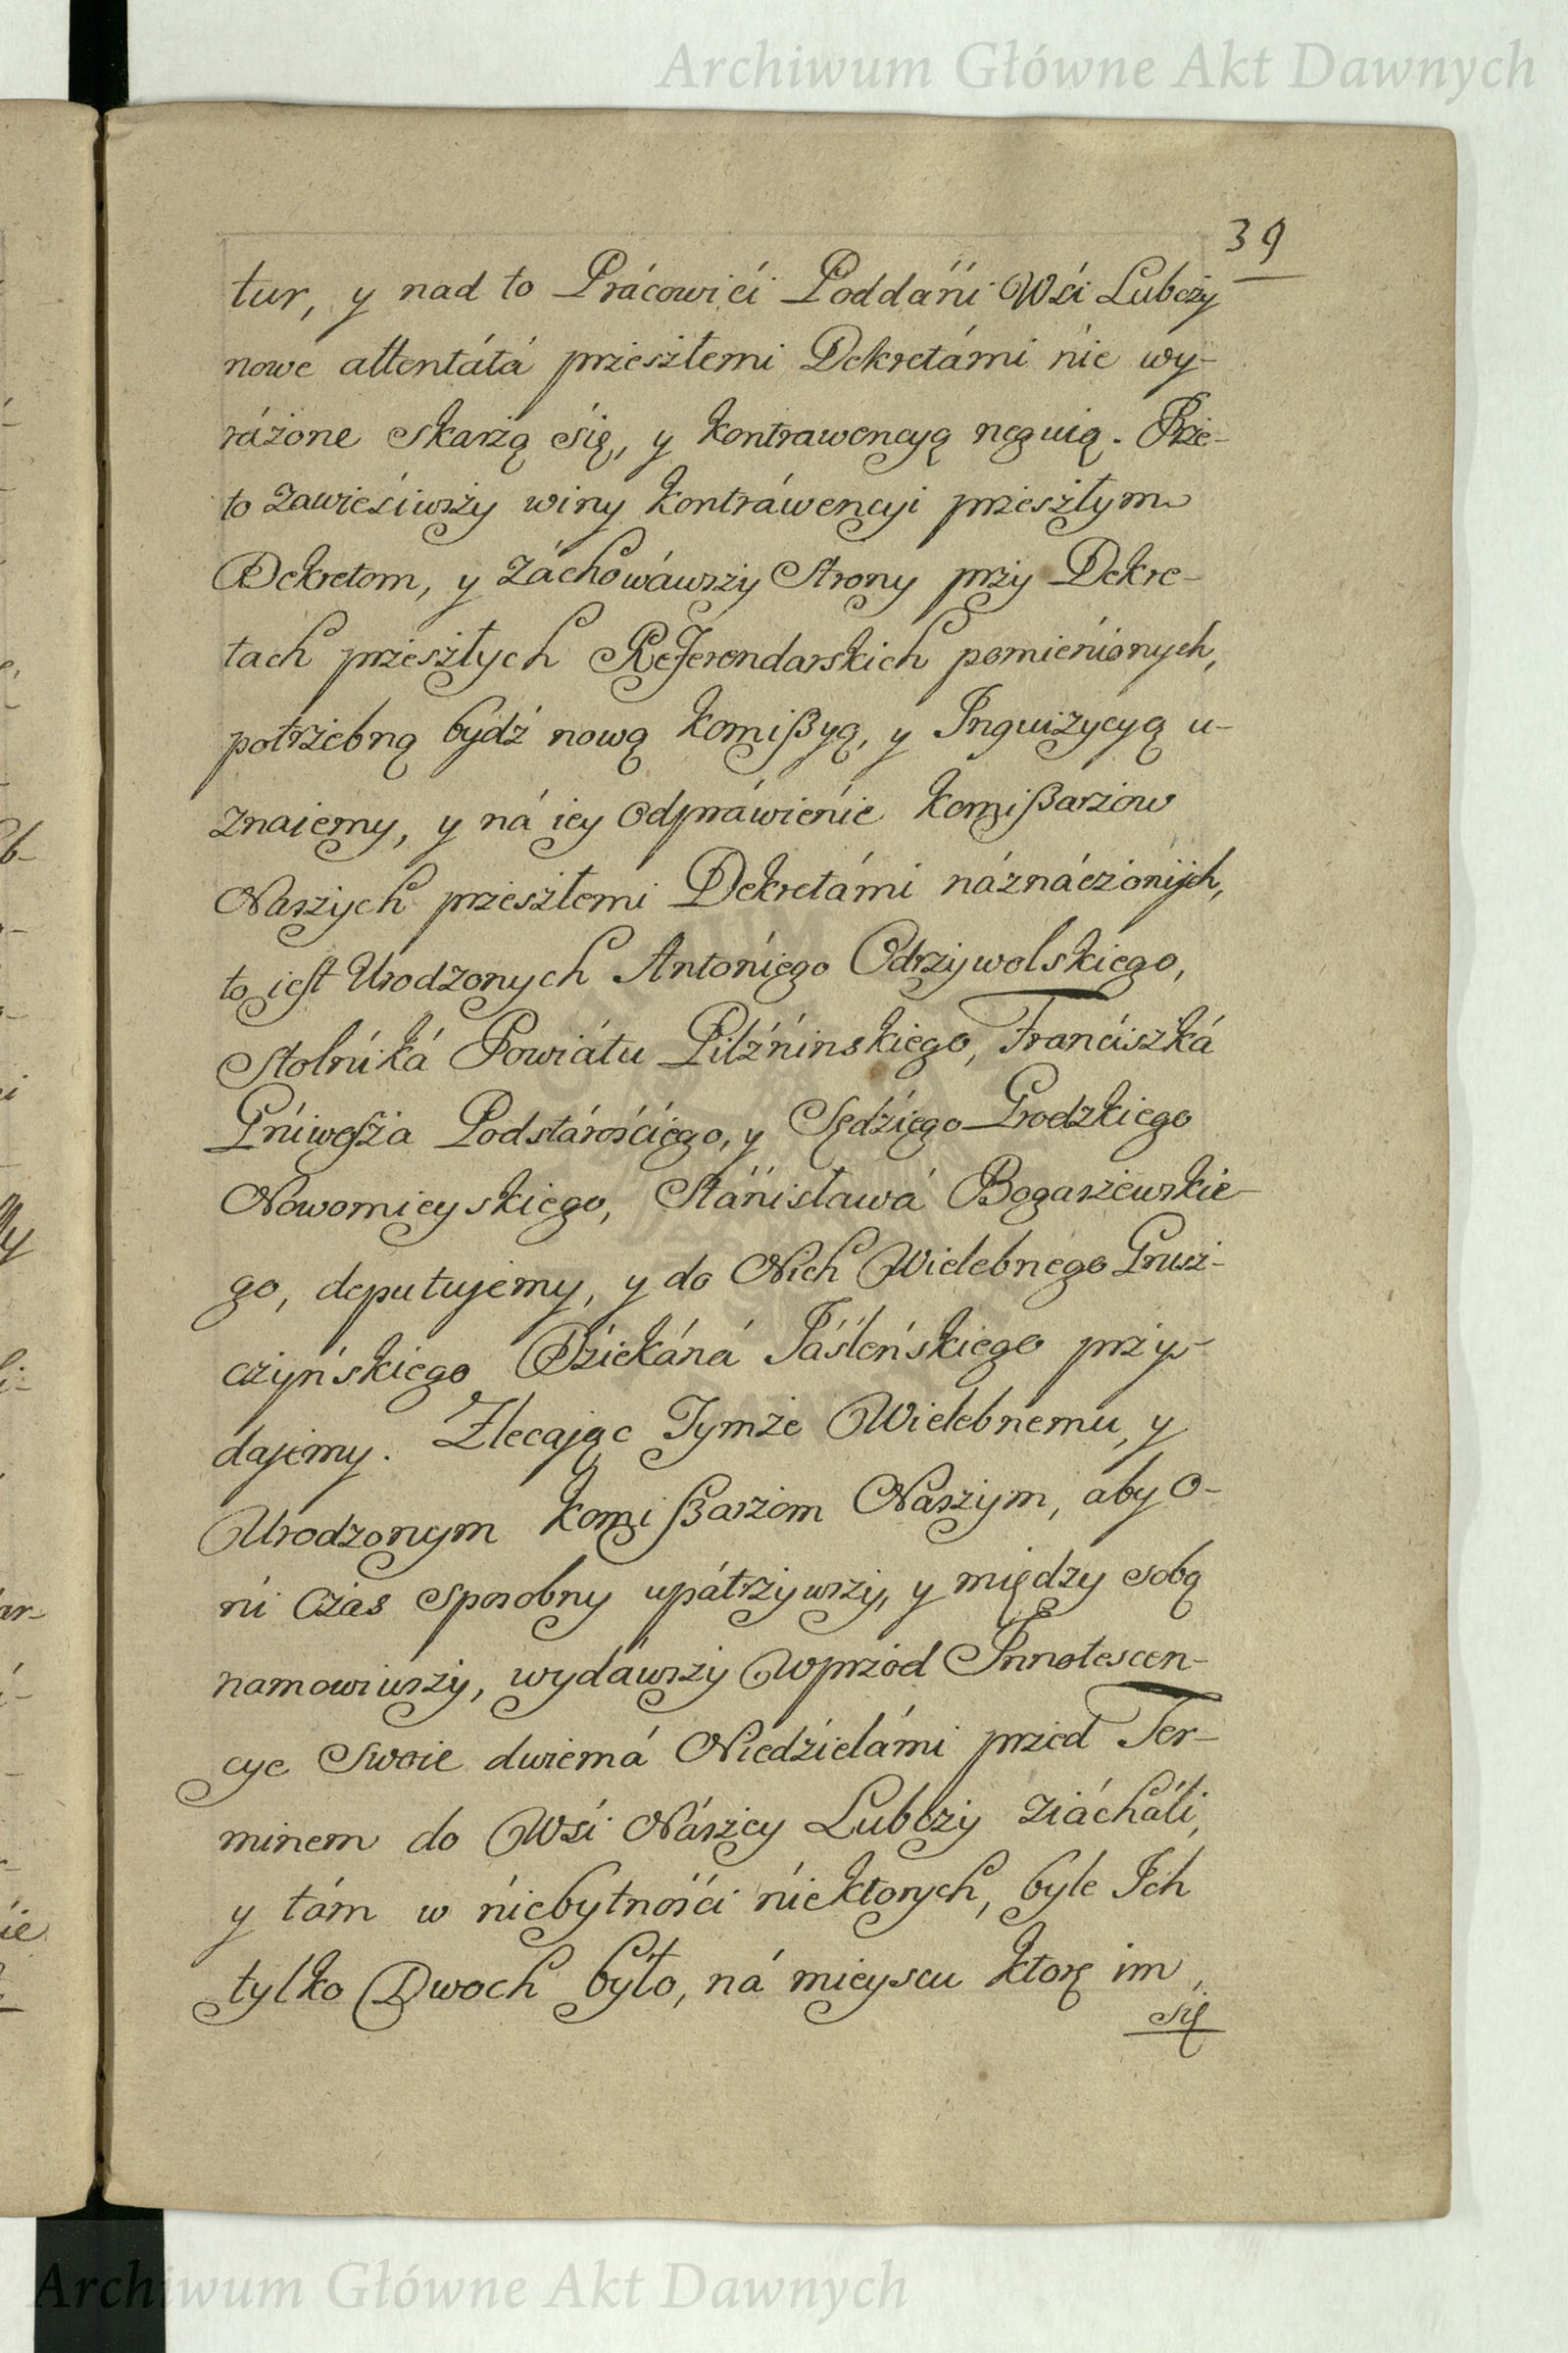 Archiwum Główne Akt Dawnych
39
tur, y nad to Prácowići Poddáńi Wśi Lubczy
nowe attentátá przeszłemi Dekretámi nie wy-
ráżone skarżą się, y kontrawencyą neguią. Prze-
to zawieśiwszy winy kontráwencyi przeszłym
Dekretom, y záchowáwszy Strony przy Dekre-
tach przeszłych Referendarskich pomienionych,
potrzebną bydź nową komißyą, y Inquizycyą u-
znaiemy, y ná iey odpráwienie komißarzow
Naszych przeszłemi Dekretámi náznáczónych,
to iest Urodzonych Antoniego Odrzywolskiego,
Stolniká Powiátu Pilźninskiego, Franciszká
Gniwosza Podstárośćiego, y Sędźiego Grodzkiego
Nowomieyskiego, Stánisławá Bogaszewskie-
go, deputujemy, y do Nich Wielebnego Grusz-
czyńskiego Dźiekáná Jásleńskiego przy-
dajemy. Zlecając Tymże Wielebnemu, y
Urodzonym komißarzom Naszym, aby o-
ni czas sposobny upátrzywszy, y między sobą
namowiwszy, wydáwszy wprzód Innotescen-
cye swoie dwiemá Niedźielámi przed Ter-
minem do Wśi Nászey Lubczy ziácháli,
y tám w niebytnośći niektorych, byle Ich
tylko Dwoch było, ná mieyscu ktorę im
się
Archiwum Główne Akt Dawnych